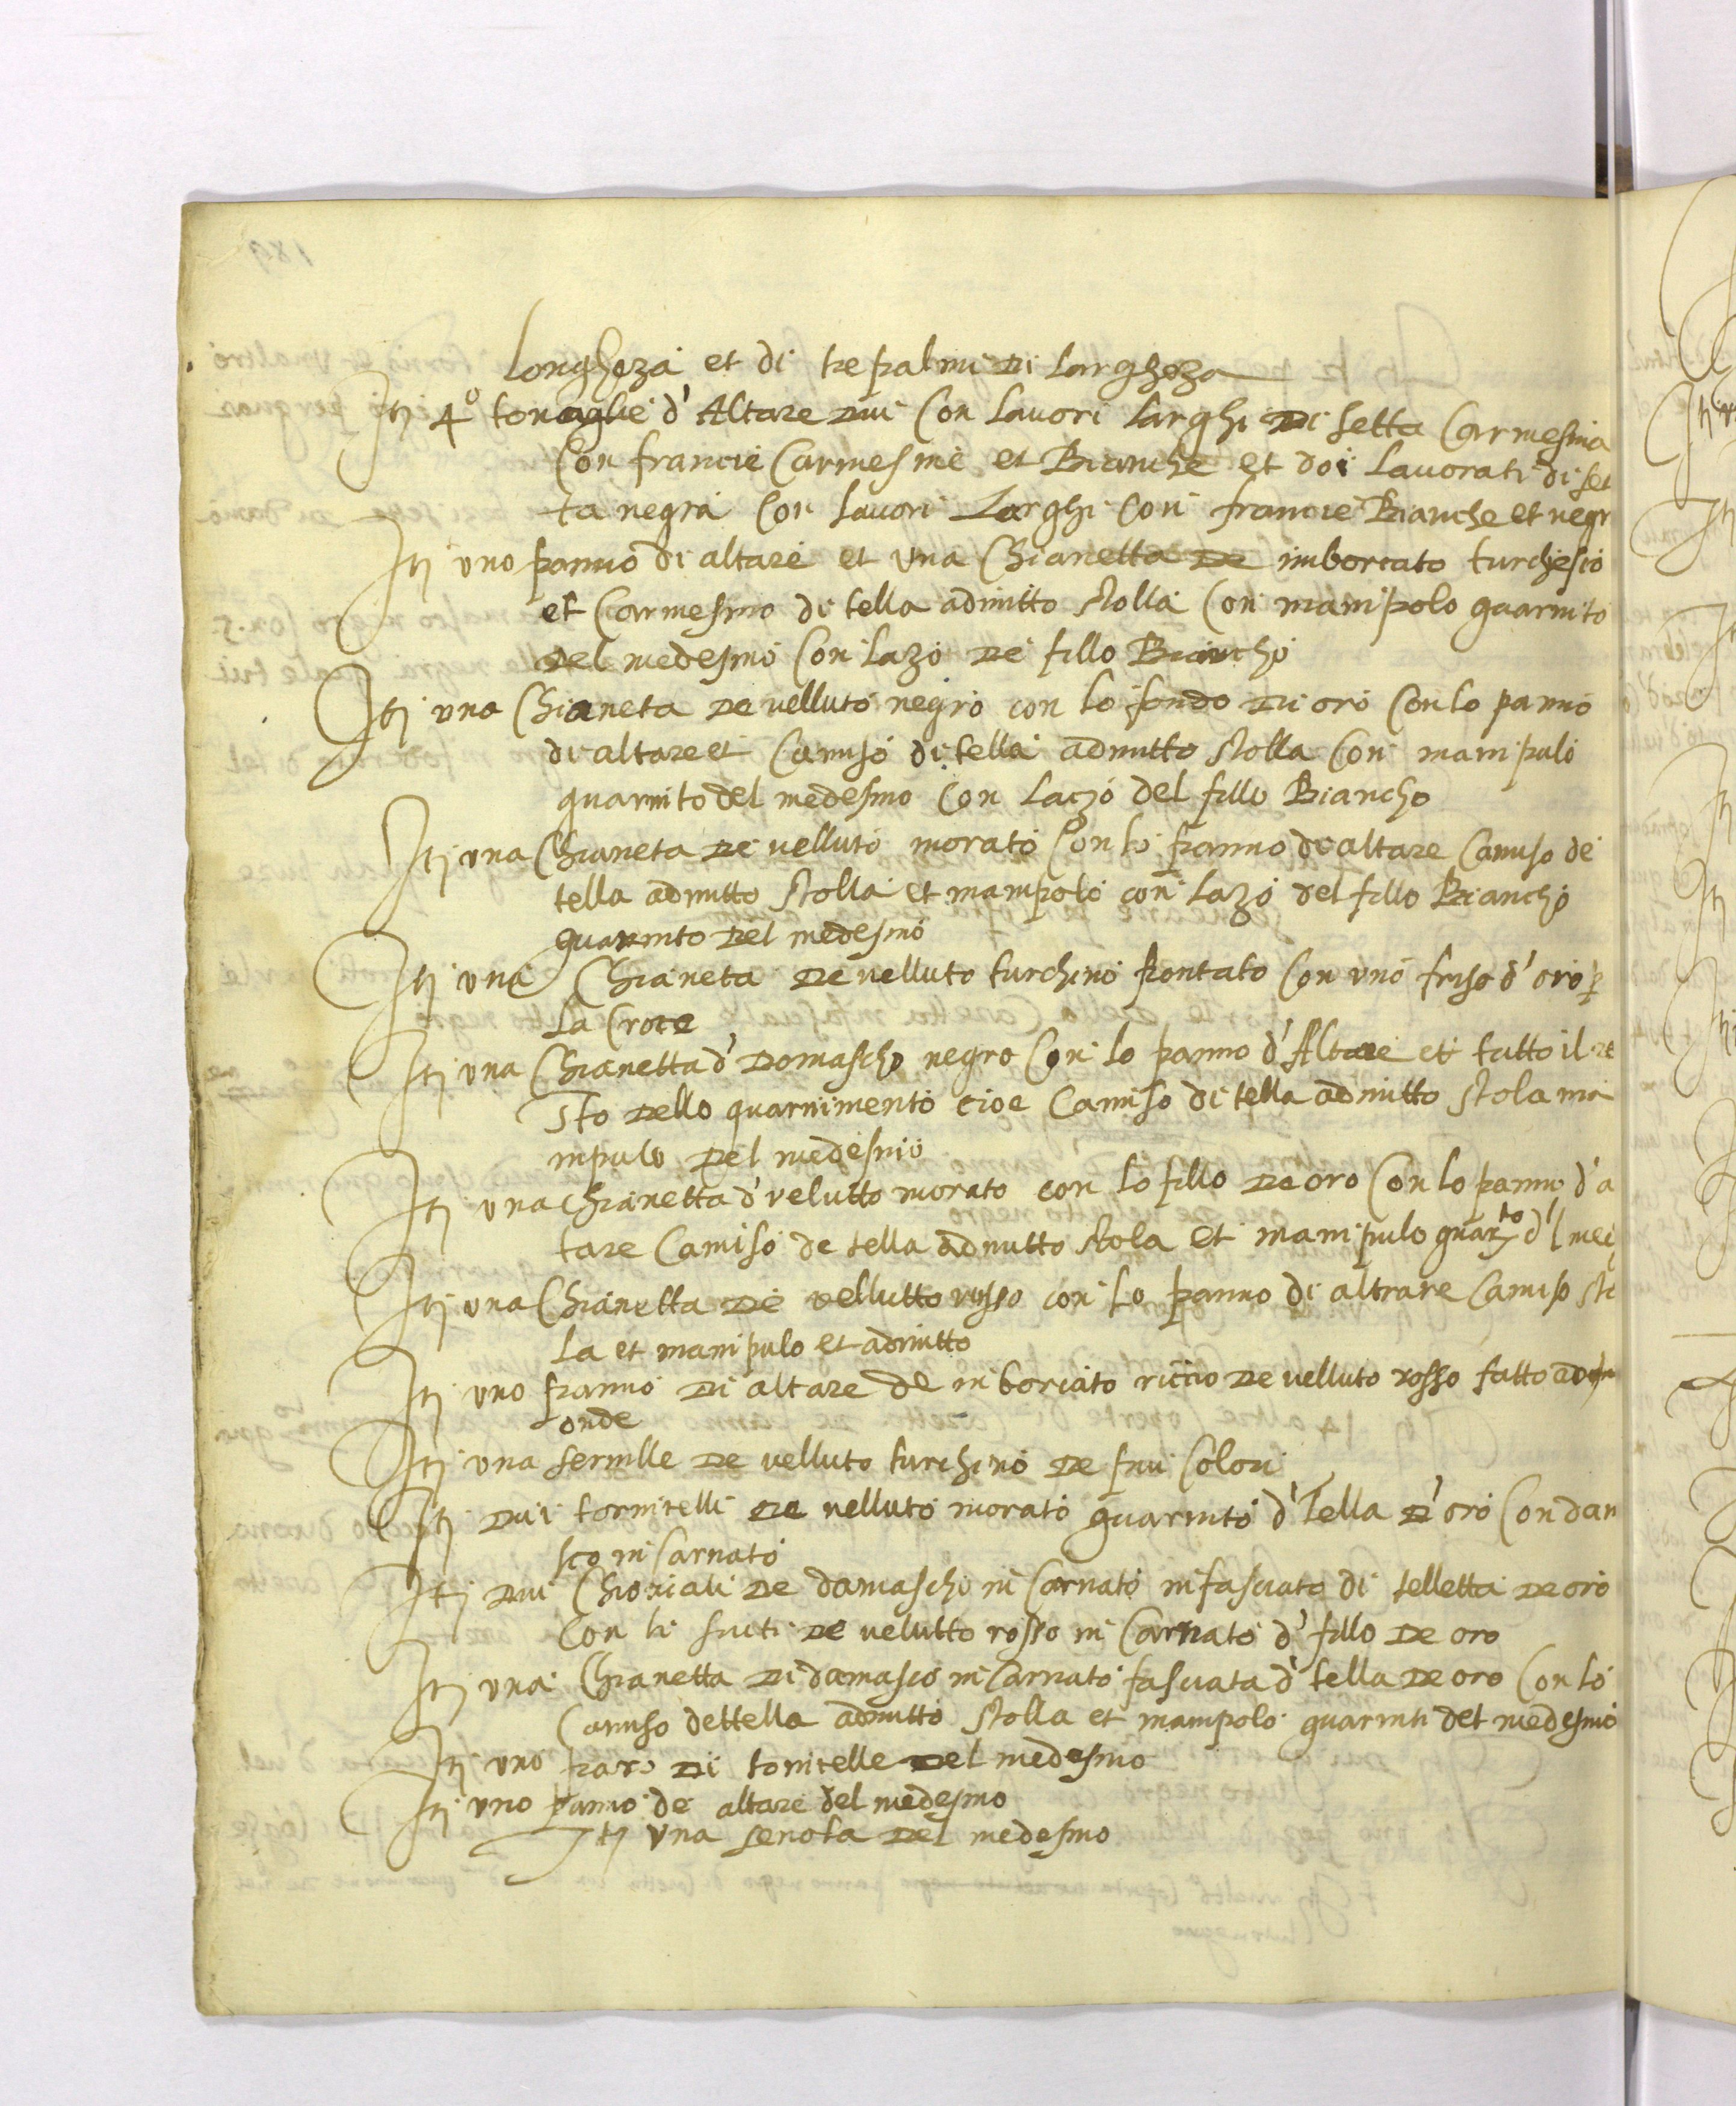 Longheza et di tre palmi di largheza
Itj 4º tonaglie d'Altare dui Con lavori larghi di setta Carmesina
Con francie Carmesine et Bianche et doi lavorati di set
ta negra Con lavori Larghi con francie Bianche et negr
Itj uno panno di altare et una Chianetta de imborcato turchesco
et Carmesino di tella admitto stolla Con manipolo guarnito
del medesmo Con lazo de fillo Biancho
Itj una Chianeta de velluto negro con lo fondo di oro Con lo panno
di altare et Camiso di tella admitto stolla Con manipulo
guarnito del medesmo Con laczo del fillo Biancho
Itj una Chianeta de velluto morato Con lo panno di altare Camiso de
tella admitto stolla et manipolo con lazo del fillo Biancho
guarnito del medesmo
Itj una Chianeta de velluto turchino Pontato Con uno friso d'oro p
La Croce
Itj una Chianetta d' Domascho negro Con lo panno d'Altare et tutto il re
sto dello guarnimento cioe Camiso di tella admitto stola ma
nipulo del medesmo
Itj una chianetta d' velutto morato con lo fillo de oro Con lo panno d'a
tare Camiso de tella admitto stola et manipulo guar.to d'l med
Itj una Chianetta de vellutto russo con lo panno di altrare Camiso sto
La et manipulo et admitto
Itj uno panno di altare de inborcato riccio de velluto rosso fatto ad
onde
Itj una de velluto turchino de piu Colori
Itj dui tornicelli de velluto morato guarnito d'Tella d'oro Con dam
sco in Carnato
Itj dui de damascho in Carnato infasciato di telletta de oro
Con li de velutto rosso in Carnato d' fillo de oro
Itj una Chianetta di damasco in Carnato fasciata d' tella de oro Con lo
Camiso dettella admitto stolla et manipolo guarniti del medesmo
Itj uno paro di tonicelle del medesmo
Itj uno panno de altare del medesmo
Itj una del medesmo